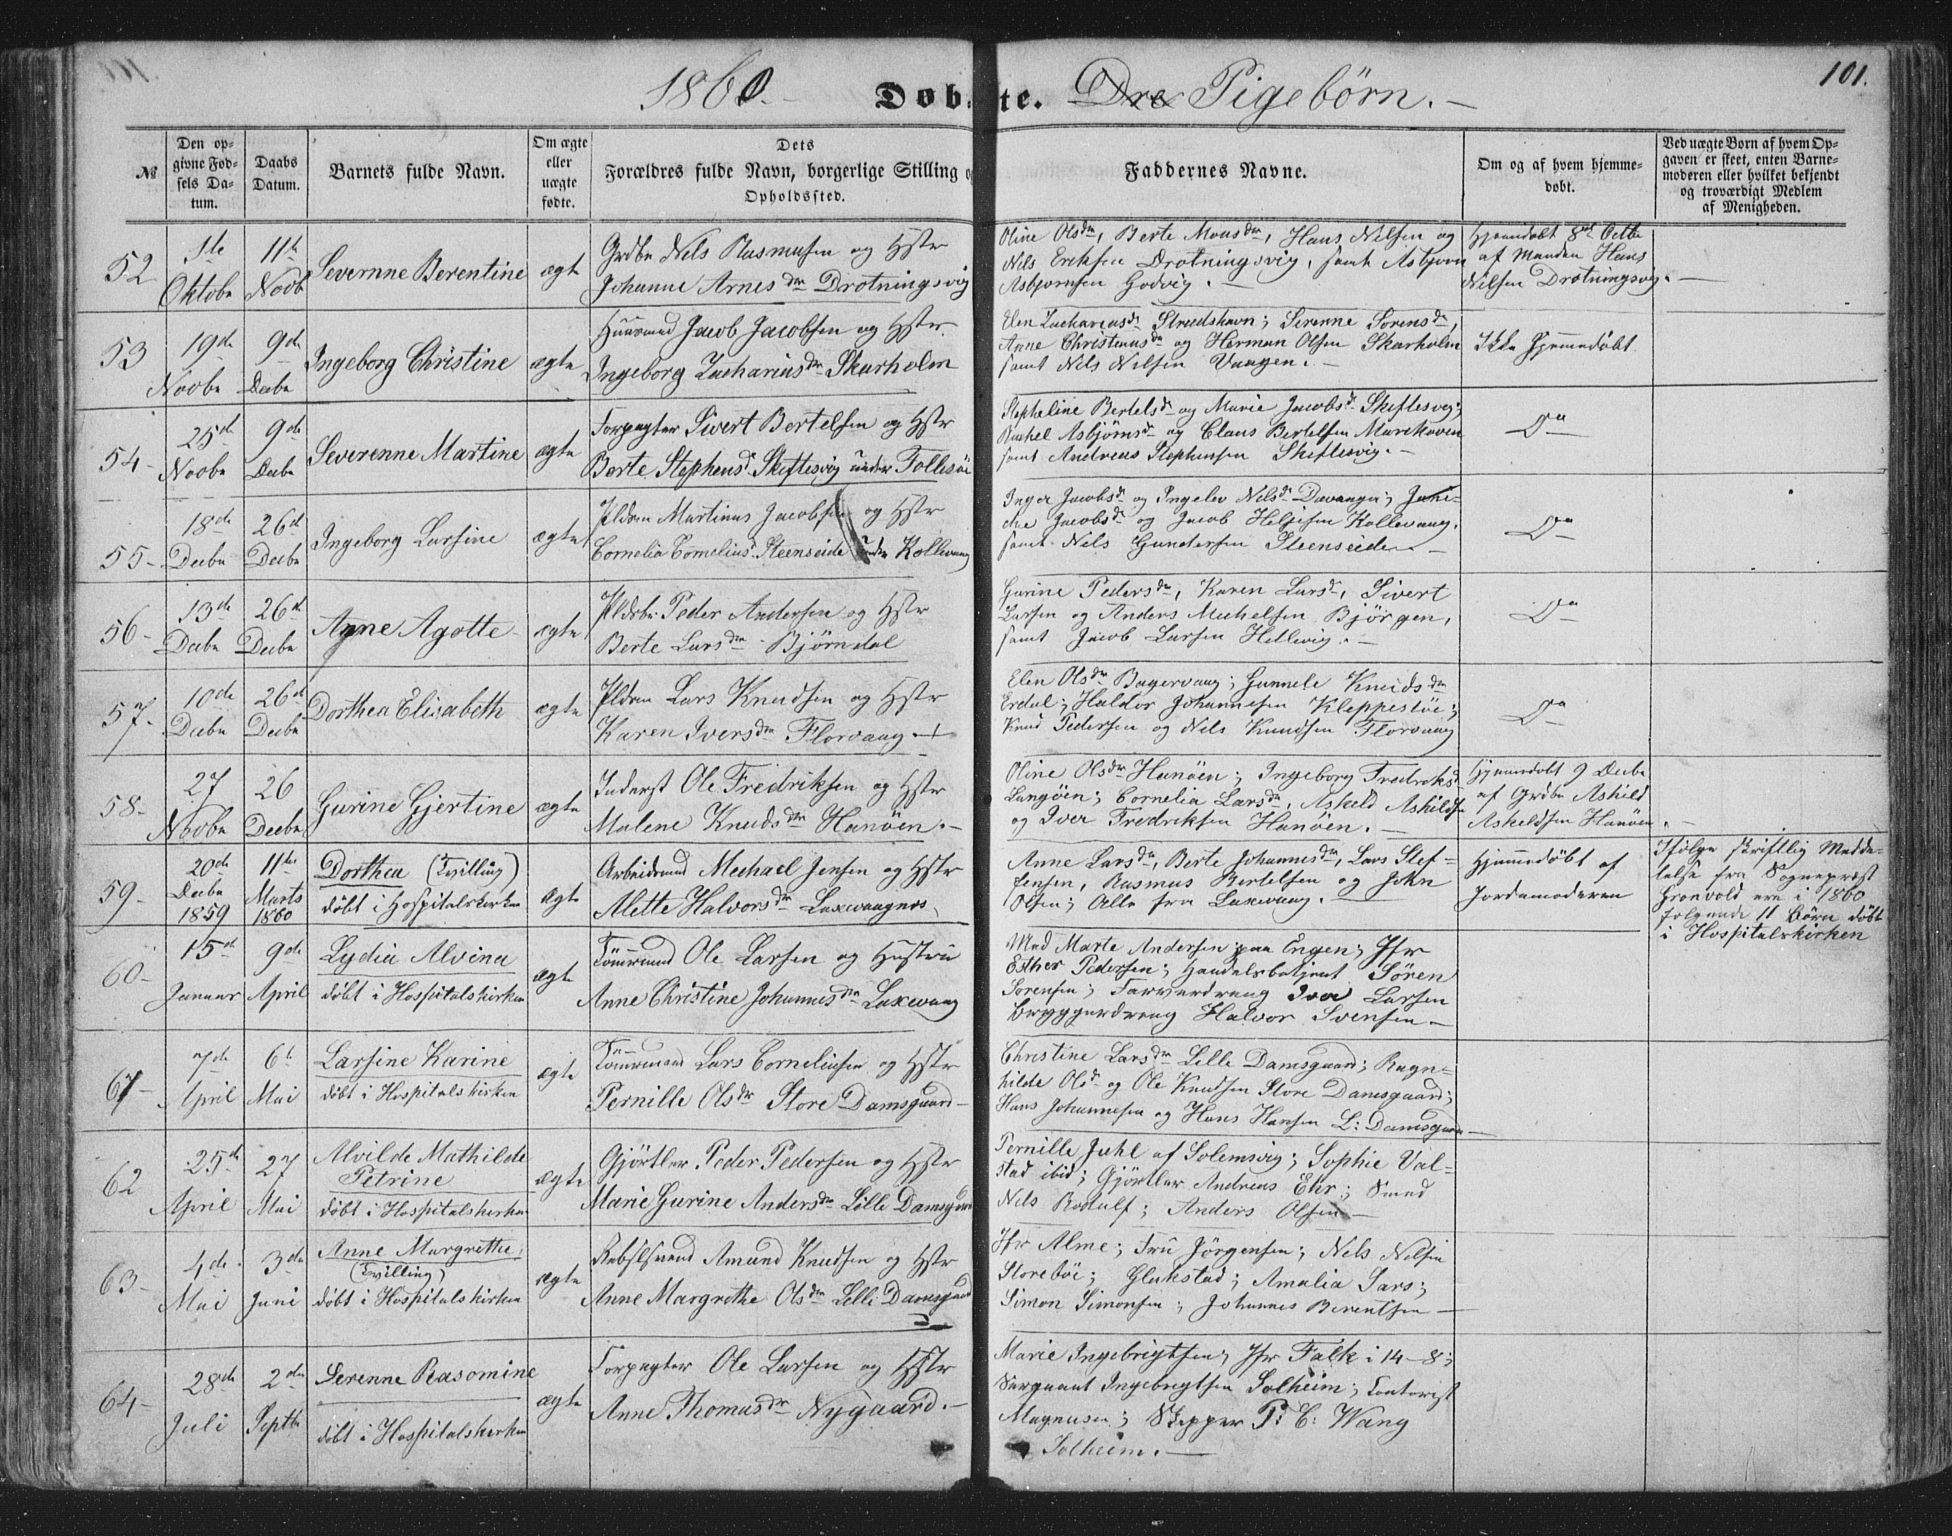 1860. Døbte. Dre Pigebørn.
101.
№
Den op-
givne Fød-
sels Da-
tum.
Daabs
Datum.
Barnets fulde Navn.
Om ægte
eller
uægte
fødte.
Dets
Forældres fulde Navn, borgerlige Stilling og
Opholdssted.
Faddernes Navne.
Om og af hvem hjemme-
døbt.
Ved uægte Børn af hvem Op-
gaven er skeet, enten Barne-
moderen eller hvilket bekjendt
og troværdigt Medlem
af Menigheden.
52
1ste
Oktobr
11te
Novb
Severnne Berentine
ægte
Grdbr Nels Rasmusen og Hstr
Johanne Arnesdtr Drotningsvig
Oline Olsdtr, Berte Monsdtr, Hans Nilsen og
Nels Eriksen Drotningsvig, samt Asbjørn
Asbjørnsen Godvig.
Hjemdøbt 8de Octbr
af Manden Hans
Nilsen Drotningsvg.
53
19de
Novbr
9de
Decbr
Ingeborg Christine
ægte
Huusmand Jacob Jacobsen og Hstr
Ingeborg Zachariasdtr Skarholm
Elen Zachariasdtr Strudshavn; Serenne Sørensdtr,
Anne Christensdtr og Herman Olsen Skarholm
samt Nels Nilsen Vaagen.
Ikke Hjemmedøbt
54
25de
Novbr
9de
Decbr
Severenne Martine
ægte
Forpagter Sivert Bertelsen og Hstr
Berte Stephensd. Skiftesvig under Follesøe
Stepheline Bertelsdr og Marie Jacobsdr Skiftesvig;
Rachel Asbjørnsdr og Claus Bertelsen Marikoven
samt Andreas Stephensen Skiftesvig.
Do
55
18de
Decbr
26de
Decbr
Ingeborg Larsine
ægte
Pldsm Martinus Jacobsen og Hstr
Cornelia Corneliusd. Steenseide under Kollevaag
Inger Jacobsdr og Ingelev Nelsdr Davanger; Jane-
che Jacobsdr og Jacob Helgesen Kollevaag,
samt Nels Gundersen Steenseide.
Do
56
13de
Decbr
26de
Decbr
Anne Agotte
ægte
Pldsbr Peder Andersen og Hstr
Berte Larsdtr Bjørndal
Gurine Pedersdtr, Karen Larsd, Sivert
Larsen og Anders Mechelsen Bjørgen,
samt Jacob Larsen Hetlevig.
Do
57
10de
Decbr
26de
Decbr
Dorthea Elisabeth
ægte
Pldsm Lars Knudsen og Hstr
Karen Iversdtr Florvaag
Elen Olsdtr Bagervaag; Gunnele Knudsdtr
Erdal; Haldor Johannesen Kleppestøe;
Knud Pedersen og Nels Knudsen Florvaag
Do
58
27
Novbr
26
Decbr
Gurine Gjertine
ægte
Inderst Ole Fredriksen og Hstr
Malene Knudsdtr Hanøen.
Oline Olsdtr Hanøen; Ingeborg Fredriksd
Langøen; Cornelia Larsdtr, Askeld Askeldsn
og Iver Fredriksen Hanøen.
Hjemmdøbt 9 Decbr
af Grdbr Askild
Askeldsen Hanøen.
59
20de
Decbr
1859
11te
Marts
1860
Dorthea (Tvilling)
døbt i Hospitalskirken
Ægte
Arbeidsmd Mechael Jensen og Hstr
Alette Halvorsdtr Laxevaagnes
Anne Larsdtr, Berte Johannesdtr, Lars Stef-
fensen, Rasmus Bertelsen og John
Olsen; Alle fra Laxevaag.
Hjemmedøbt af
Jordemoderen
Ifølge skriftlig Medde-
lelse fra Sogneprest
Grønvold ere i 1860
følgende 11 Børn døbt
i Hospitalskirken
60
15de
Januar
9de
April
Lydia Alvina
døbt i Hospitalskirken
ægte
Tømmrmd Ole Larsen og Hustru
Anne Christine Johannesdtr Laxevaag
Mad Marte Andersen paa Engen; Jfr
Esther Pedersen; Handelsbetjent Søren
Sørensen; Farverdreng Iver Larsen
Bryggerdreng Halvor Svensen
61
7de
April
6te
Mai
Larsine Karine
døbt i Hospitalskirken
ægte
Tømmrmand Lars Corneliusen og Hstr
Pernille Olsdtr Store Damsgaard
Christine Larsdtr Lille Damsgaard; Ragn-
hilde Olsdr og Ole Knudsen Store Damsgaard;
Hans Johannesen og Hans Hansen L: Damsgaard
62
25de
April
27
Mai
Alvilde Mathilde
Petrine
døbt i Hospitalskirken
ægte
Gjørtler Peder Pedersen og Hstr
Marie Gurine Andersdtr Lille Damsgaard
Pernille Juhl af Solemsvig; Sophie Val-
stad ibid; Gjørtler Andreas Ehr; Smed
Nels Rodulf; Anders Olsen
63
4de
Mai
3de
Juni
Anne Margrethe,
(Tvilling)
døbt i Hospitalskirken
ægte
Amund Knudsen og Hstr
Anne Margrethe Olsdtr Lille Damsgaard
Jfr Alme; Fru Jørgensen; Nels Nelsen
Storebøe; Glukstad; Amalia Sars;
Simon Simonsen; Johannes Berentsen
64
28de
Juli
2den
Septbr
Serenne Rasomine
døbt i Hospitalskirken
ægte
Forpagter Ole Larsen og Hstr
Anne Thomasdtr Nygaard.
Marie Ingebrigtsen; Jfr Falk i 14-8;
Sergeant Ingebrigtsen Solheim; Contorist
Magnusen; Skipper P: C: Wang
Solheim.